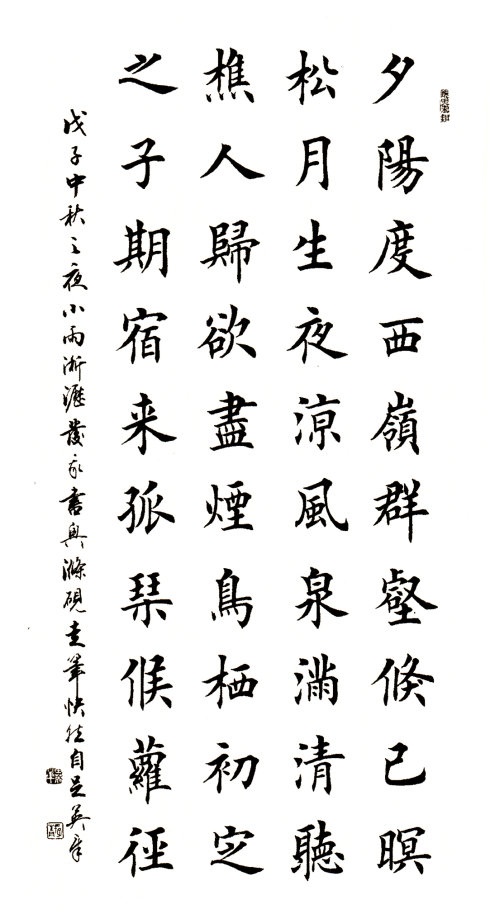 夕陽度西嶺群壑倏已暝
松月生夜涼風泉滿清聽
樵人歸欲盡煙鳥栖初定
之子期宿来孤琴候蘿徑
戊子中秋之夜小雨淅瀝發我書興滌硯走筆快然自足